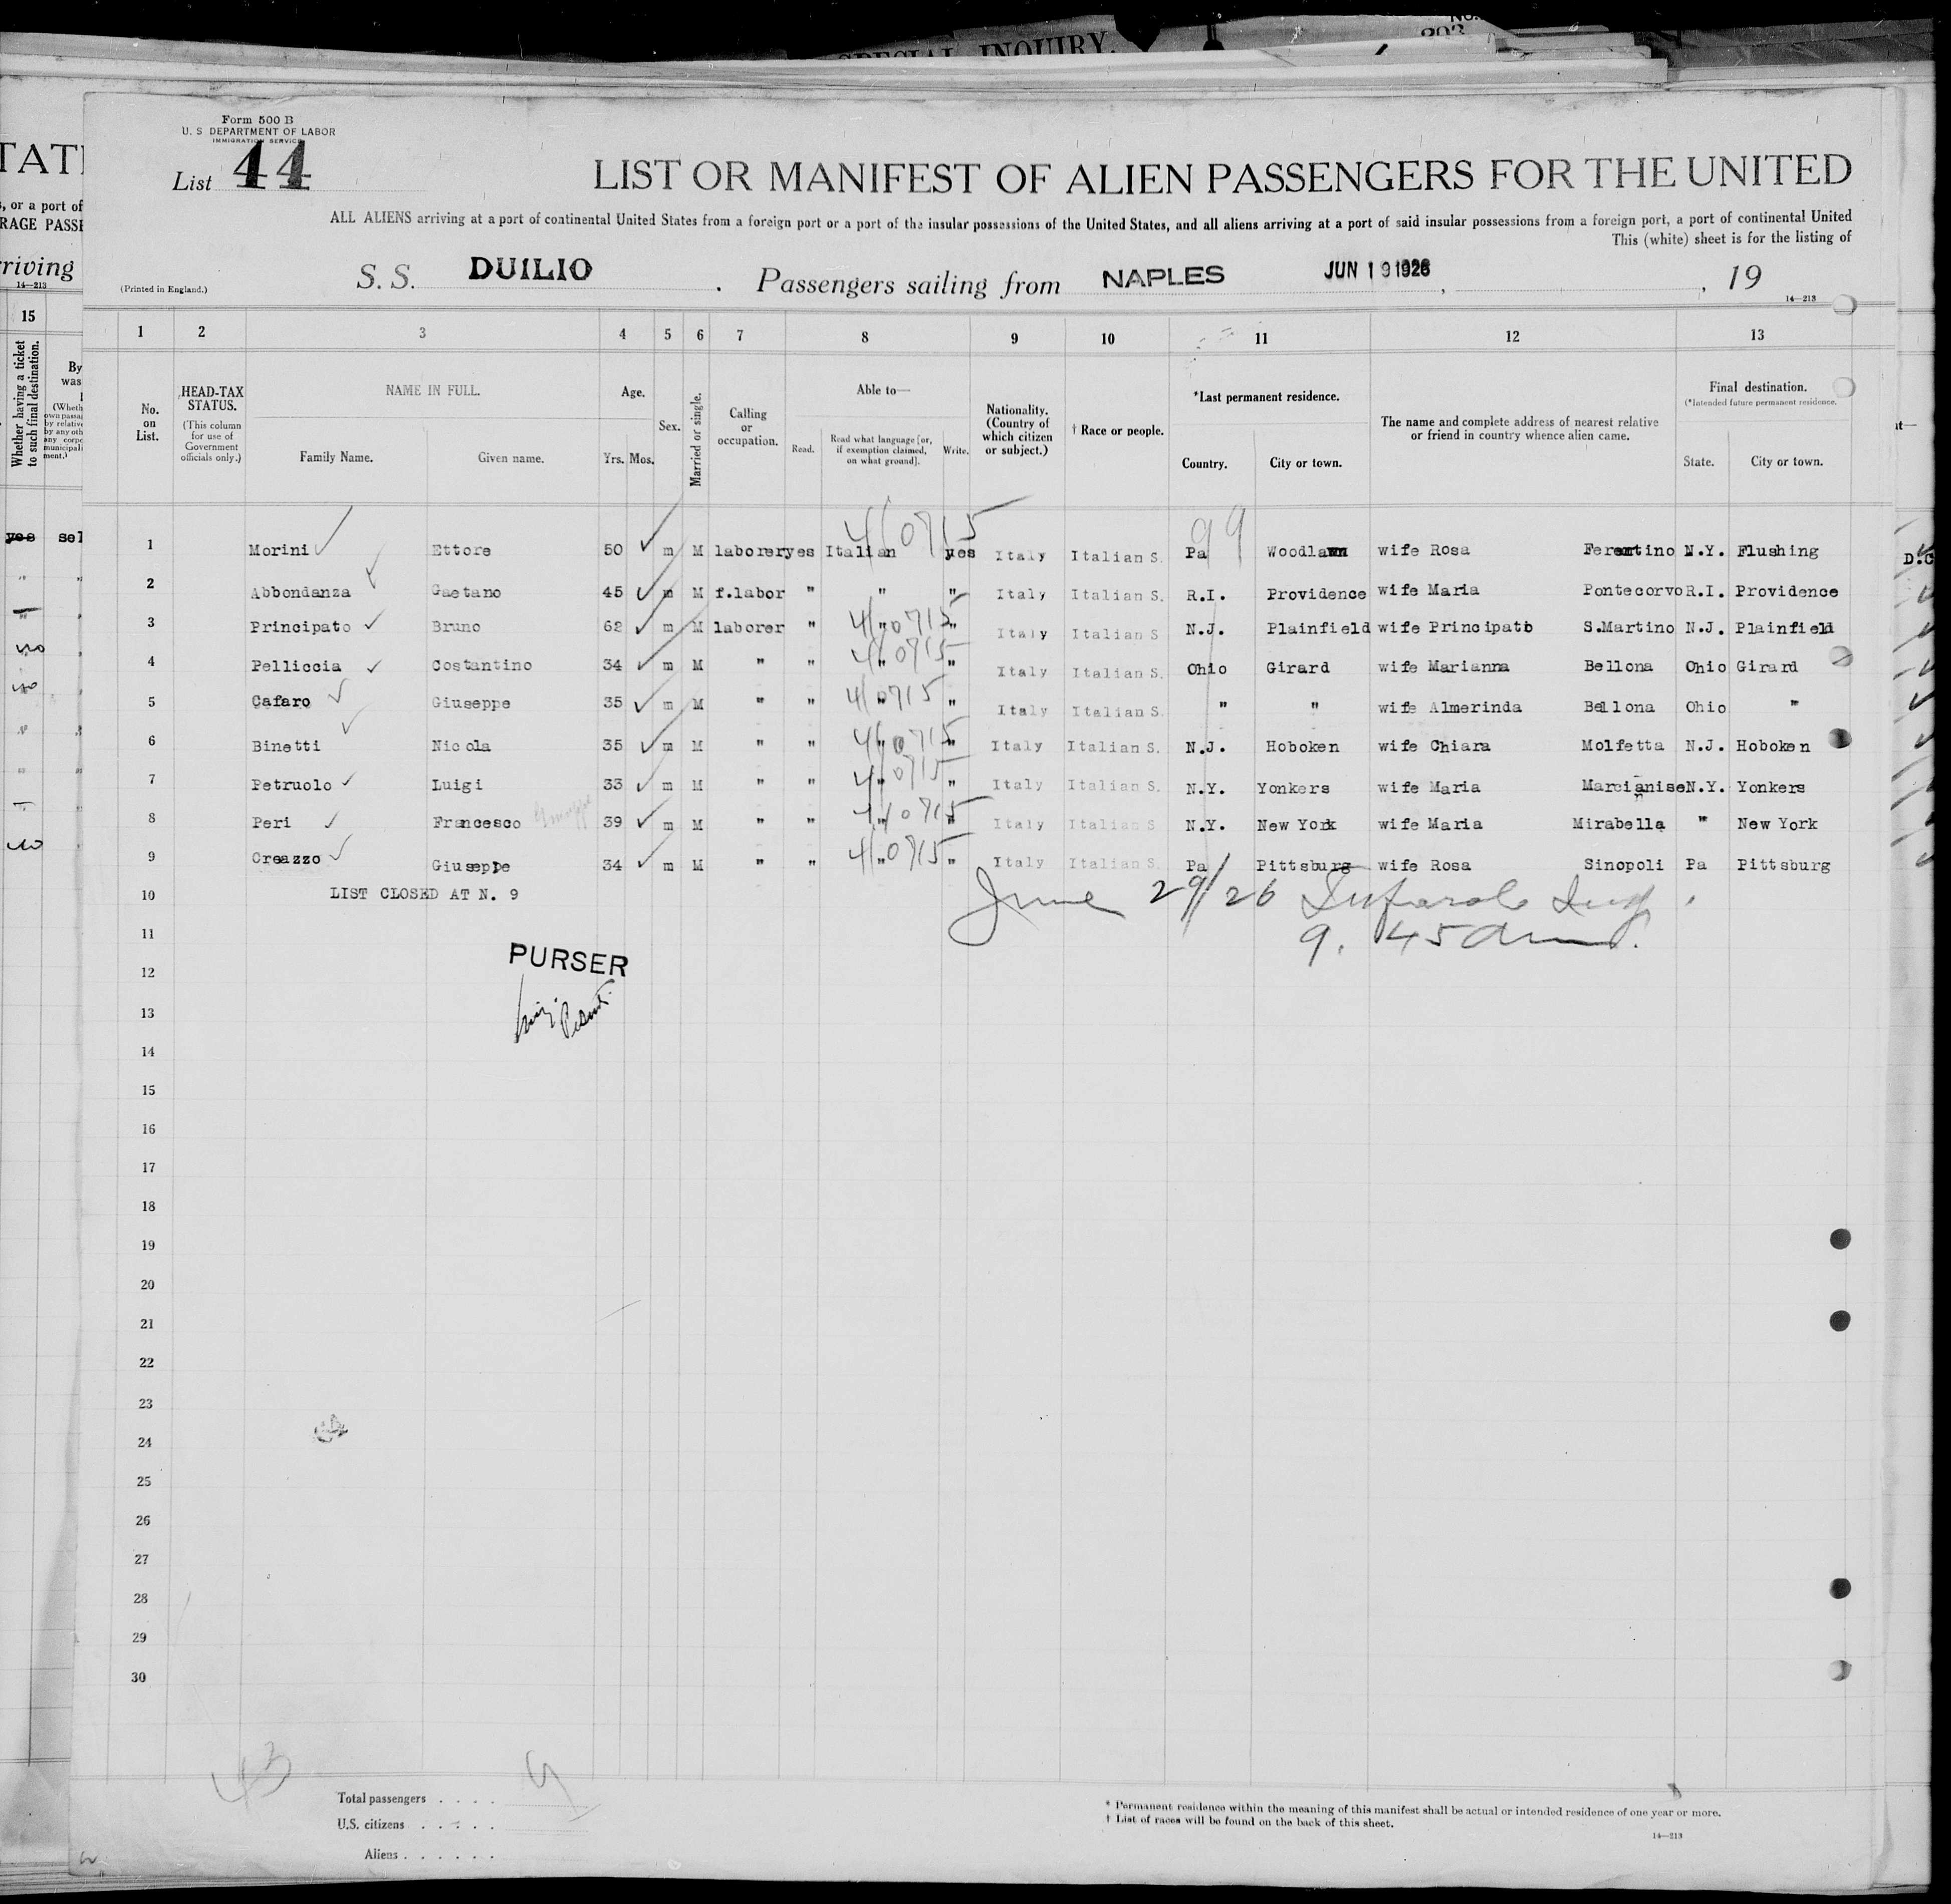 SPECIAL INQUIRY.
Form 500 B
U. S DEPARTMENT OF LABOR
IMMIGRATION SERVICE
List 44
LIST OR MANIFEST OF ALIEN PASSENGERS FOR THE UNITED
ALL ALIENS arriving at a port of continental United States from a foreign port or a port of the insular possessions of the United States, and all aliens arriving at a port of said insular possessions from a foreign port, a port of continental United
This (white) sheet is for the listing of
(Printed in England.) S. S. DUILIO . Passengers sailing from NAPLES JUN 19 1926 , , 19
14—213
1 2 3 4 5 6 7 8 9 10 11 12 13
No. on List.
HEAD-TAX STATUS.
(This column for use of Government officials only.)
NAME IN FULL.
Family Name. Given name.
Age.
Yrs. Mos.
Sex.
Married or single.
Calling or occupation.
Able to—
Read. Read what language [or, if exemption claimed, on what ground]. Write.
Nationality. (Country of which citizen or subject.)
† Race or people.
*Last permanent residence.
Country. City or town.
The name and complete address of nearest relative or friend in country whence alien came.
Final destination.
(*Intended future permanent residence.
State. City or town.
99
1 Morini Ettore 50 m M laborer yes Italian yes Italy Italian S. Pa Woodlawn wife Rosa Ferentino N.Y. Flushing
2 Abbondanza Gaetano 45 m M f.labor " " " Italy Italian S. R.I. Providence wife Maria Pontecorvo R.I. Providence
3 Principato Bruno 62 m M laborer " " " Italy Italian S N.J. Plainfield wife Principato S.Martino N.J. Plainfield
4 Pelliccia Costantino 34 m M " " " " Italy Italian S. Ohio Girard wife Marianna Bellona Ohio Girard
5 Cafaro Giuseppe 35 m M " " " " Italy Italian S. " " wife Almerinda Bellona Ohio "
6 Binetti Nicola 35 m M " " " " Italy Italian S. N.J. Hoboken wife Chiara Molfetta N.J. Hoboken
7 Petruolo Luigi 33 m M " " " " Italy Italian S. N.Y. Yonkers wife Maria Marcianise N.Y. Yonkers
8 Peri Francesco Giuseppe 39 m M " " " " Italy Italian S N.Y. New York wife Maria Mirabella " New York
9 Creazzo Giuseppe 34 m M " " " " Italy Italian S. Pa Pittsburg wife Rosa Sinopoli Pa Pittsburg
10 LIST CLOSED AT N. 9
June 29/26
11
9.45 am.
12 PURSER
13
14
15
16
17
18
19
20
21
22
23
24
25
26
27
28
29
30
43
Total passengers . . . . 9
U.S. citizens . . . . .
Aliens . . . . . .
* Permanent residence within the meaning of this manifest shall be actual or intended residence of one year or more.
† List of races will be found on the back of this sheet.
14—213